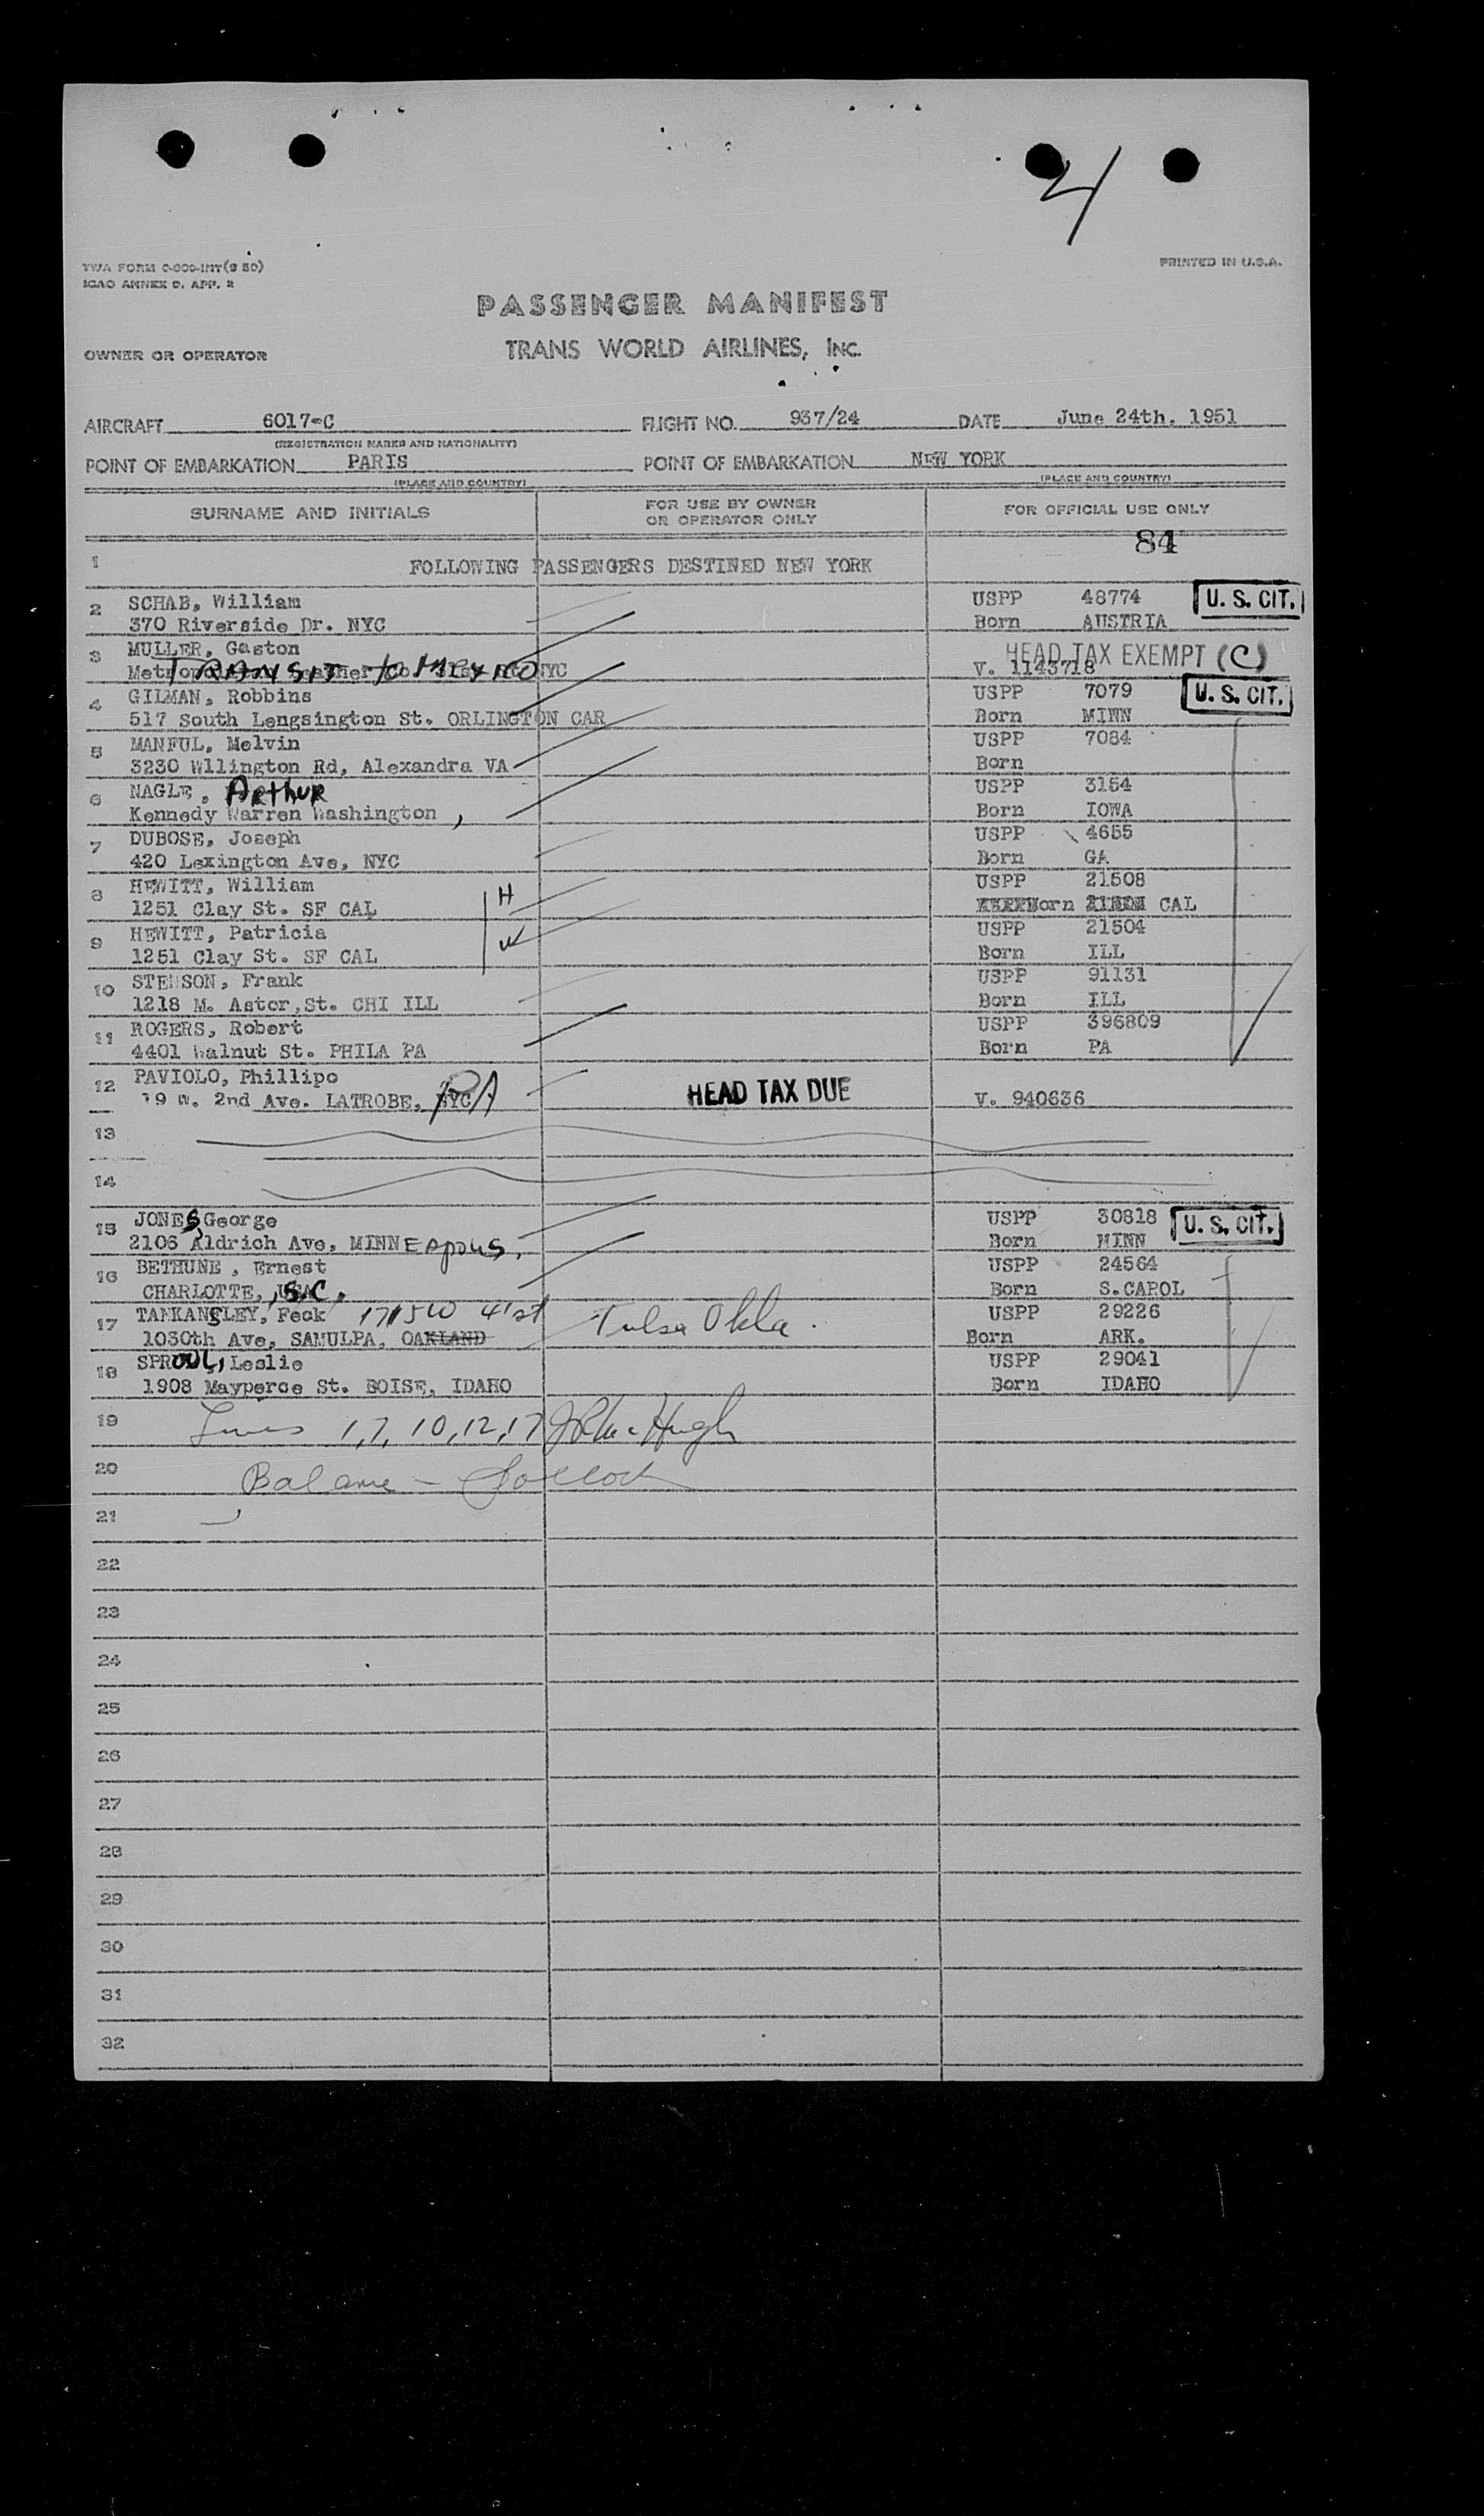 4
TWA FORM O-800-INT(S 50)
ICAO ANNEX 9, APP. 2
PRINTED IN U.S.A.
PASSENGER MANIFEST
TRANS WORLD AIRLINES, INC.
OWNER OR OPERATOR
AIRCRAFT 6017-C FLIGHT NO. 937/24 DATE June 24th. 1951
(REGISTRATION MARKS AND NATIONALITY)
POINT OF EMBARKATION PARIS POINT OF EMBARKATION NEW YORK
(PLACE AND COUNTRY) (PLACE AND COUNTRY)
SURNAME AND INITIALS FOR USE BY OWNER OR OPERATOR ONLY FOR OFFICIAL USE ONLY
84
1 FOLLOWING PASSENGERS DESTINED NEW YORK
2 SCHAB, William USPP 48774 U. S. CIT.
370 Riverside Dr. NYC Born AUSTRIA
3 MULLER, Gaston HEAD TAX EXEMPT (C)
TRANSIT to MEXICO NYC V. 1143718
4 GILMAN, Robbins USPP 7079 U. S. CIT.
517 South Lengsington St. ORLINGTON CAR Born MINN
5 MANFUL, Melvin USPP 7084
3230 Wllington Rd, Alexandra VA Born
6 NAGLE, Arthur USPP 3154
Kennedy Warren Washington , Born IOWA
7 DUBOSE, Joseph USPP 4655
420 Lexington Ave, NYC Born GA
8 HEWITT, William H USPP 21508
1251 Clay St. SF CAL Born CAL
9 HEWITT, Patricia W USPP 21504
1251 Clay St. SF CAL Born ILL
10 STENSON, Frank USPP 91131
1218 M. Astor,St. CHI ILL Born ILL
11 ROGERS, Robert USPP 396809
4401 Walnut St. PHILA PA Born PA
12 PAVIOLO, Phillipo
19 W. 2nd Ave. LATROBE, NYC PA HEAD TAX DUE V. 940636
13
14
15 JONES, George USPP 30818 U. S. CIT.
2106 Aldrich Ave, MINNEApolis. Born MINN
16 BETHUNE , Ernest USPP 24564
CHARLOTTE, S.C. Born S.CAROL
17 TANKANSLEY, Feck 1715 W 41st Tulsa Okla. USPP 29226
1030th Ave, SAMULPA, OAKLAND Born ARK.
18 SPROUL, Leslie USPP 29041
1908 Mayperce St. BOISE, IDAHO Born IDAHO
19 Lines 1, 7, 10, 12, 17 McHugh
20 Balance -
21
22
23
24
25
26
27
28
29
30
31
32